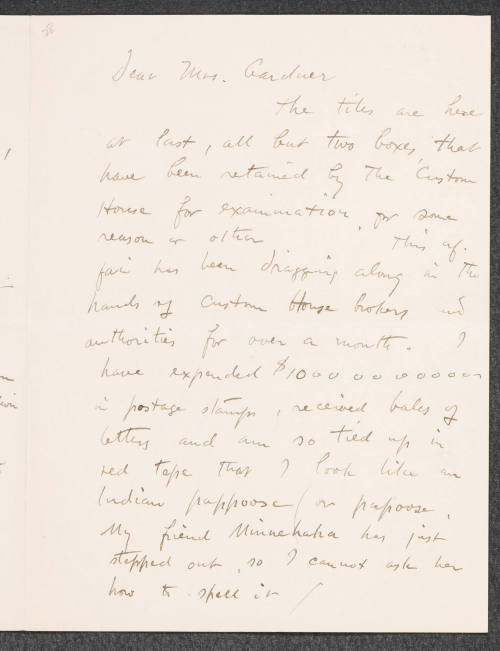 Dear Mrs. Gardner
The tiles are here
at last, all but two boxes that
have been retained by The Custom
House for examination, for some
reason or other This af-
fair has been dragging along in The
hands of Custom House brokers and
authorities for over a month. I
have expended $1000 00 0000000
in postage stamps, received bales of
letters and am so tied up in
red tape that I look like an
Indian pappoose (or papoose,
My friend Minnehaha has just
stepped out, so I cannot ask her
how to spell it /